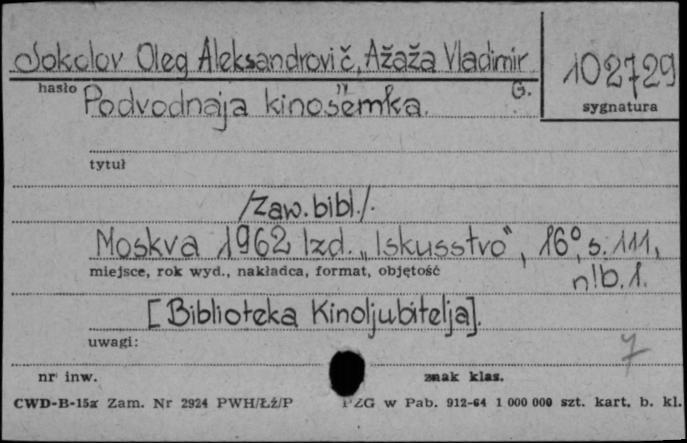 Sokolov Oleg Aleksandrovič, Ažaža Vladimir G.
102729
hasło
sygnatura
Podvodnaja kinosʺemka.
tytuł
/zaw. bibl./.
Moskva 1962 Izd. „Iskusstvo", 16°, s. 111,
miejsce, rok wyd., nakładca, format, objętość
nlb. 1.
[Biblioteka Kinoljubitelja].
uwagi:
7
nr inw.
znak klas.
CWD-B-15a Zam. Nr 2924 PWH/Łź/P PZG w Pab. 912-64 1 000 000 szt. kart. b. kl.